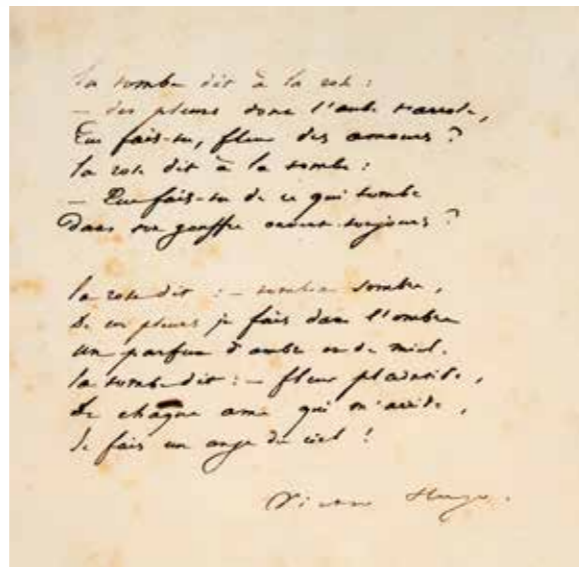 La tombe dit à la rose :
– Des pleurs dont l'aube t'arrose,
Que fais-tu, fleur des amours ?
La rose dit à la tombe :
– Que fais-tu de ce qui tombe
Dans ton gouffre ouvert toujours ?
La rose dit : – tombeau sombre,
De ces pleurs je fais dans l'ombre
Un parfum d'ambre et de miel.
La tombe dit : – fleur plaintive,
De chaque ame qui m'arrive,
Je fais un ange du ciel !
Victor Hugo.